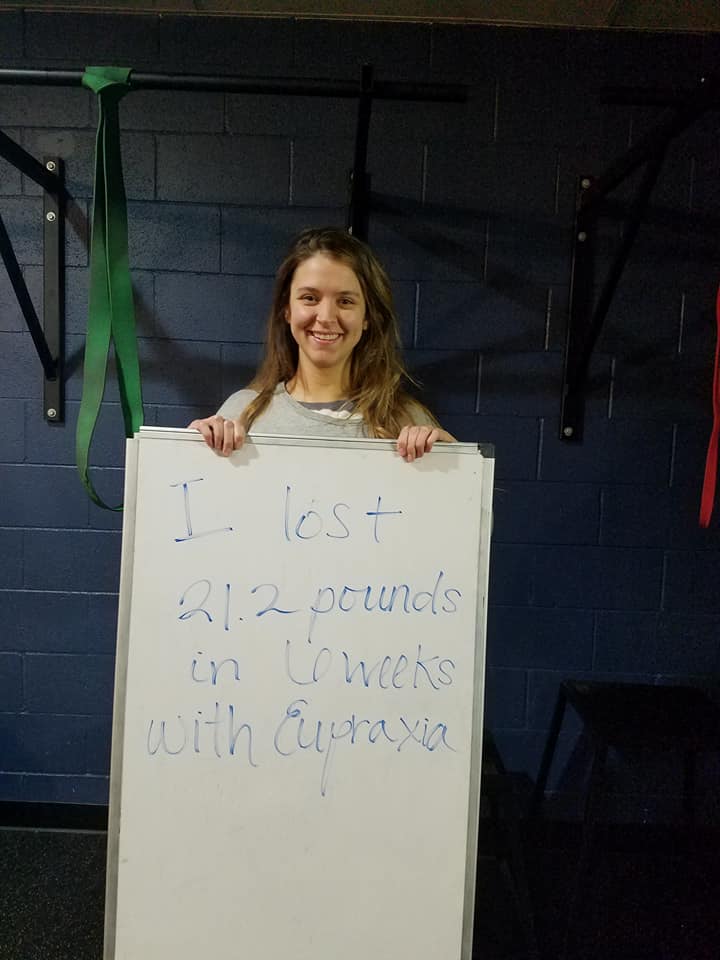 I lost
21.2 pounds
in 6 weeks
with Eupraxia